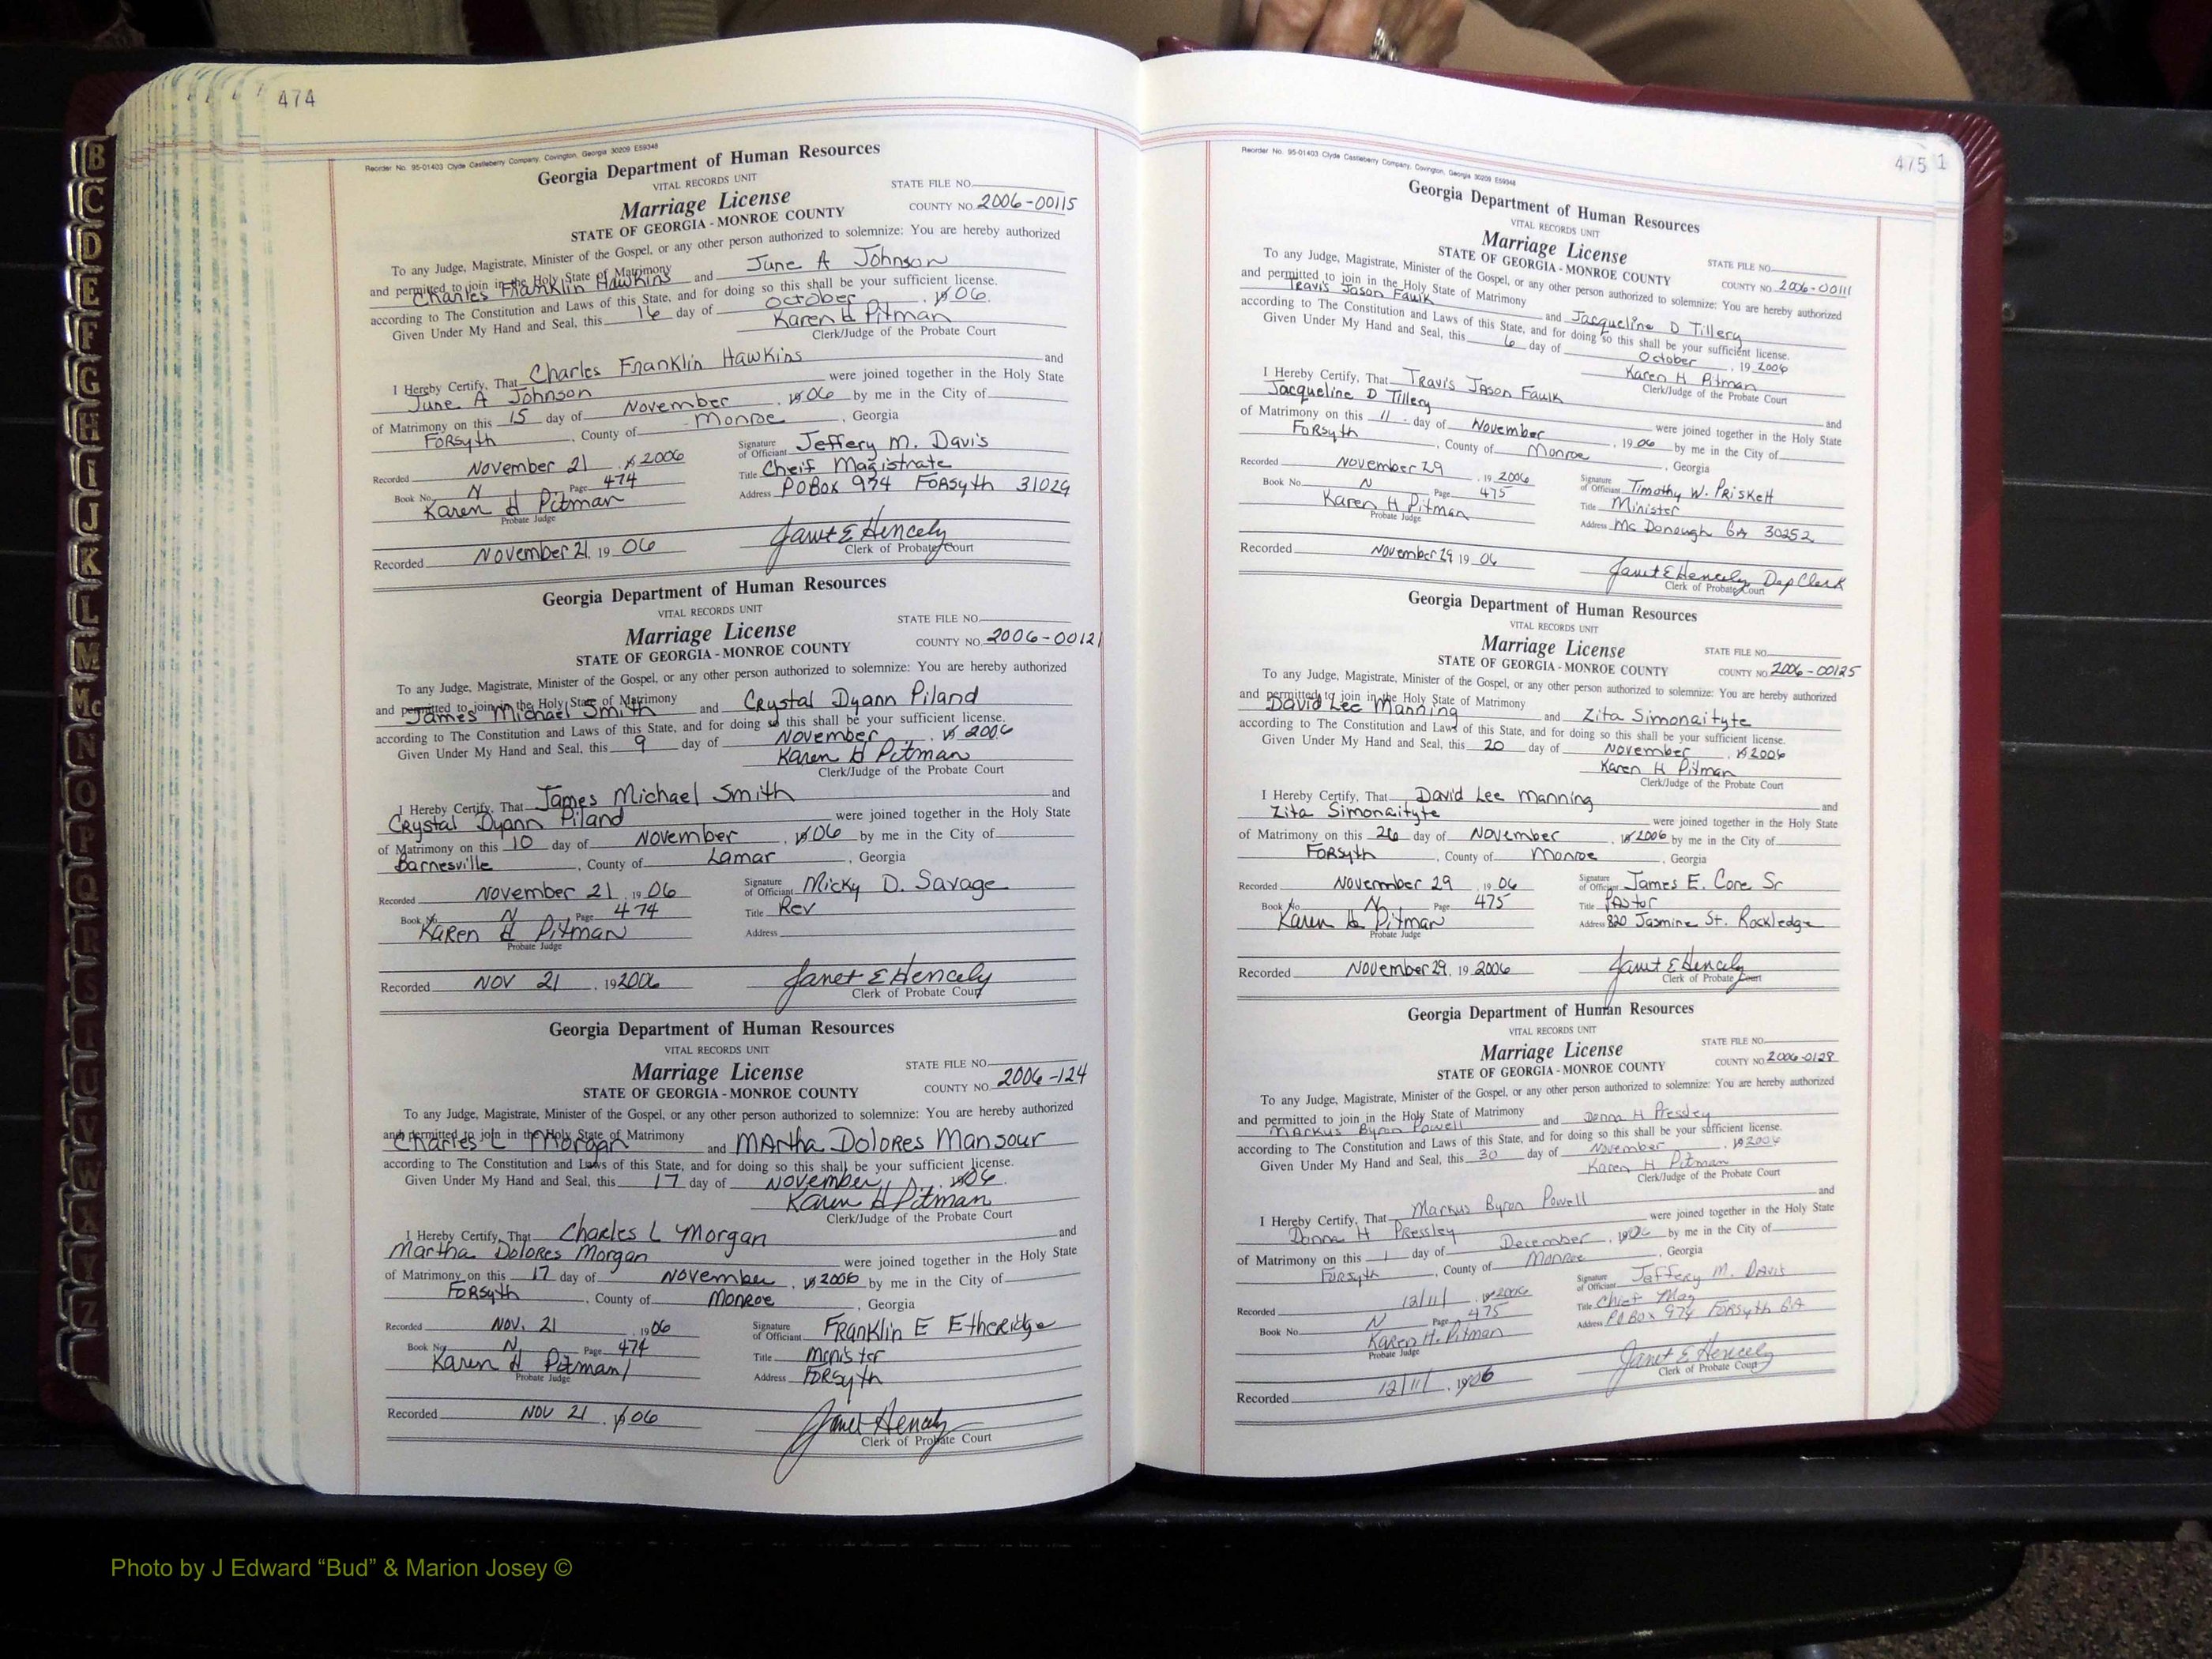 474
Reorder No. 95-01403 Clyde Castleberry Company, Covington, Georgia 30209 E59348
Georgia Department of Human Resources
VITAL RECORDS UNIT
Marriage License
STATE FILE NO.
STATE OF GEORGIA - MONROE COUNTY
COUNTY NO. 2006-00115
To any Judge, Magistrate, Minister of the Gospel, or any other person authorized to solemnize: You are hereby authorized
and permitted to join in the Holy State of Matrimony
Charles Franklin Hawkins and June A Johnson
according to The Constitution and Laws of this State, and for doing so this shall be your sufficient license.
Given Under My Hand and Seal, this 16 day of October, 19 06.
Karen H Pitman
Clerk/Judge of the Probate Court
I Hereby Certify, That Charles Franklin Hawkins and
June A Johnson were joined together in the Holy State
of Matrimony on this 15 day of November, 19 06 by me in the City of
Forsyth, County of Monroe, Georgia
Recorded November 21, 19 2006
Signature of Officiant Jeffery M. Davis
Book No. N Page 474
Title Cheif Magistrate
Karen H Pitman
Address PO Box 974 Forsyth 31029
Probate Judge
Recorded November 21, 19 06
Janet E Hencely
Clerk of Probate Court
Georgia Department of Human Resources
VITAL RECORDS UNIT
Marriage License
STATE FILE NO.
STATE OF GEORGIA - MONROE COUNTY
COUNTY NO. 2006-00121
To any Judge, Magistrate, Minister of the Gospel, or any other person authorized to solemnize: You are hereby authorized
and permitted to join in the Holy State of Matrimony
James Michael Smith and Crystal Dyann Piland
according to The Constitution and Laws of this State, and for doing so this shall be your sufficient license.
Given Under My Hand and Seal, this 9 day of November, 19 2006
Karen H Pitman
Clerk/Judge of the Probate Court
I Hereby Certify, That James Michael Smith and
Crystal Dyann Piland were joined together in the Holy State
of Matrimony on this 10 day of November, 19 06 by me in the City of
Barnesville, County of Lamar, Georgia
Recorded November 21, 19 06
Signature of Officiant Micky D. Savage
Book No. N Page 474
Title Rev
Karen H Pitman
Address
Probate Judge
Recorded Nov 21, 19 2006
Janet E Hencely
Clerk of Probate Court
Georgia Department of Human Resources
VITAL RECORDS UNIT
Marriage License
STATE FILE NO.
STATE OF GEORGIA - MONROE COUNTY
COUNTY NO. 2006-124
To any Judge, Magistrate, Minister of the Gospel, or any other person authorized to solemnize: You are hereby authorized
and permitted to join in the Holy State of Matrimony
Charles L Morgan and Martha Dolores Mansour
according to The Constitution and Laws of this State, and for doing so this shall be your sufficient license.
Given Under My Hand and Seal, this 17 day of November, 19 06.
Karen H Pitman
Clerk/Judge of the Probate Court
I Hereby Certify, That Charles L Morgan and
Martha Dolores Morgan were joined together in the Holy State
of Matrimony on this 17 day of November, 19 2006 by me in the City of
Forsyth, County of Monroe, Georgia
Recorded Nov. 21, 19 06
Signature of Officiant Franklin E Etheridge
Book No. N Page 474
Title Minister
Karen H Pitman
Address Forsyth
Probate Judge
Recorded Nov 21, 19 06
Janet Hencely
Clerk of Probate Court
475 1
Reorder No. 95-01403 Clyde Castleberry Company, Covington, Georgia 30209 E59348
Georgia Department of Human Resources
VITAL RECORDS UNIT
Marriage License
STATE FILE NO.
STATE OF GEORGIA - MONROE COUNTY
COUNTY NO. 2006-00111
To any Judge, Magistrate, Minister of the Gospel, or any other person authorized to solemnize: You are hereby authorized
and permitted to join in the Holy State of Matrimony
Travis Jason Faulk and Jacqueline D Tillery
according to The Constitution and Laws of this State, and for doing so this shall be your sufficient license.
Given Under My Hand and Seal, this 6 day of October, 19 2006
Karen H Pitman
Clerk/Judge of the Probate Court
I Hereby Certify, That Travis Jason Faulk and
Jacqueline D Tillery were joined together in the Holy State
of Matrimony on this 11 day of November, 19 06 by me in the City of
Forsyth, County of Monroe, Georgia
Recorded November 29, 19 2006
Signature of Officiant Timothy W. Priskett
Book No. N Page 475
Title Minister
Karen H Pitman
Address Mc Donough GA 30252
Probate Judge
Recorded November 29 19 06
Janet E Hencely Dep Clerk
Clerk of Probate Court
Georgia Department of Human Resources
VITAL RECORDS UNIT
Marriage License
STATE FILE NO.
STATE OF GEORGIA - MONROE COUNTY
COUNTY NO. 2006-00125
To any Judge, Magistrate, Minister of the Gospel, or any other person authorized to solemnize: You are hereby authorized
and permitted to join in the Holy State of Matrimony
David Lee Manning and Zita Simonaityte
according to The Constitution and Laws of this State, and for doing so this shall be your sufficient license.
Given Under My Hand and Seal, this 20 day of November, 19 2006
Karen H Pitman
Clerk/Judge of the Probate Court
I Hereby Certify, That David Lee Manning and
Zita Simonaityte were joined together in the Holy State
of Matrimony on this 26 day of November, 19 2006 by me in the City of
Forsyth, County of Monroe, Georgia
Recorded November 29, 19 06
Signature of Officiant James E. Core Sr
Book No. N Page 475
Title Pastor
Karen H Pitman
Address 820 Jasmine St. Rockledge
Probate Judge
Recorded November 29, 19 2006
Janet E Hencely
Clerk of Probate Court
Georgia Department of Human Resources
VITAL RECORDS UNIT
Marriage License
STATE FILE NO.
STATE OF GEORGIA - MONROE COUNTY
COUNTY NO. 2006-0128
To any Judge, Magistrate, Minister of the Gospel, or any other person authorized to solemnize: You are hereby authorized
and permitted to join in the Holy State of Matrimony
Markus Byron Powell and Donna H Pressley
according to The Constitution and Laws of this State, and for doing so this shall be your sufficient license.
Given Under My Hand and Seal, this 30 day of November, 19 2006
Karen H Pitman
Clerk/Judge of the Probate Court
I Hereby Certify, That Markus Byron Powell and
Donna H Pressley were joined together in the Holy State
of Matrimony on this 1 day of December, 19 06 by me in the City of
Forsyth, County of Monroe, Georgia
Recorded 12/11/, 19 2006
Signature of Officiant Jeffery M. Davis
Book No. N Page 475
Title Chief Mag
Karen H. Pitman
Address PO Box 974 Forsyth GA
Probate Judge
Recorded 12/11/, 19 06
Janet E Hencely
Clerk of Probate Court
B
C
D
E
F
G
H
I
J
K
L
M
Mc
N
O
P
Q
R
S
T
U
V
W
X
Y
Z
Photo by J Edward “Bud” & Marion Josey ©